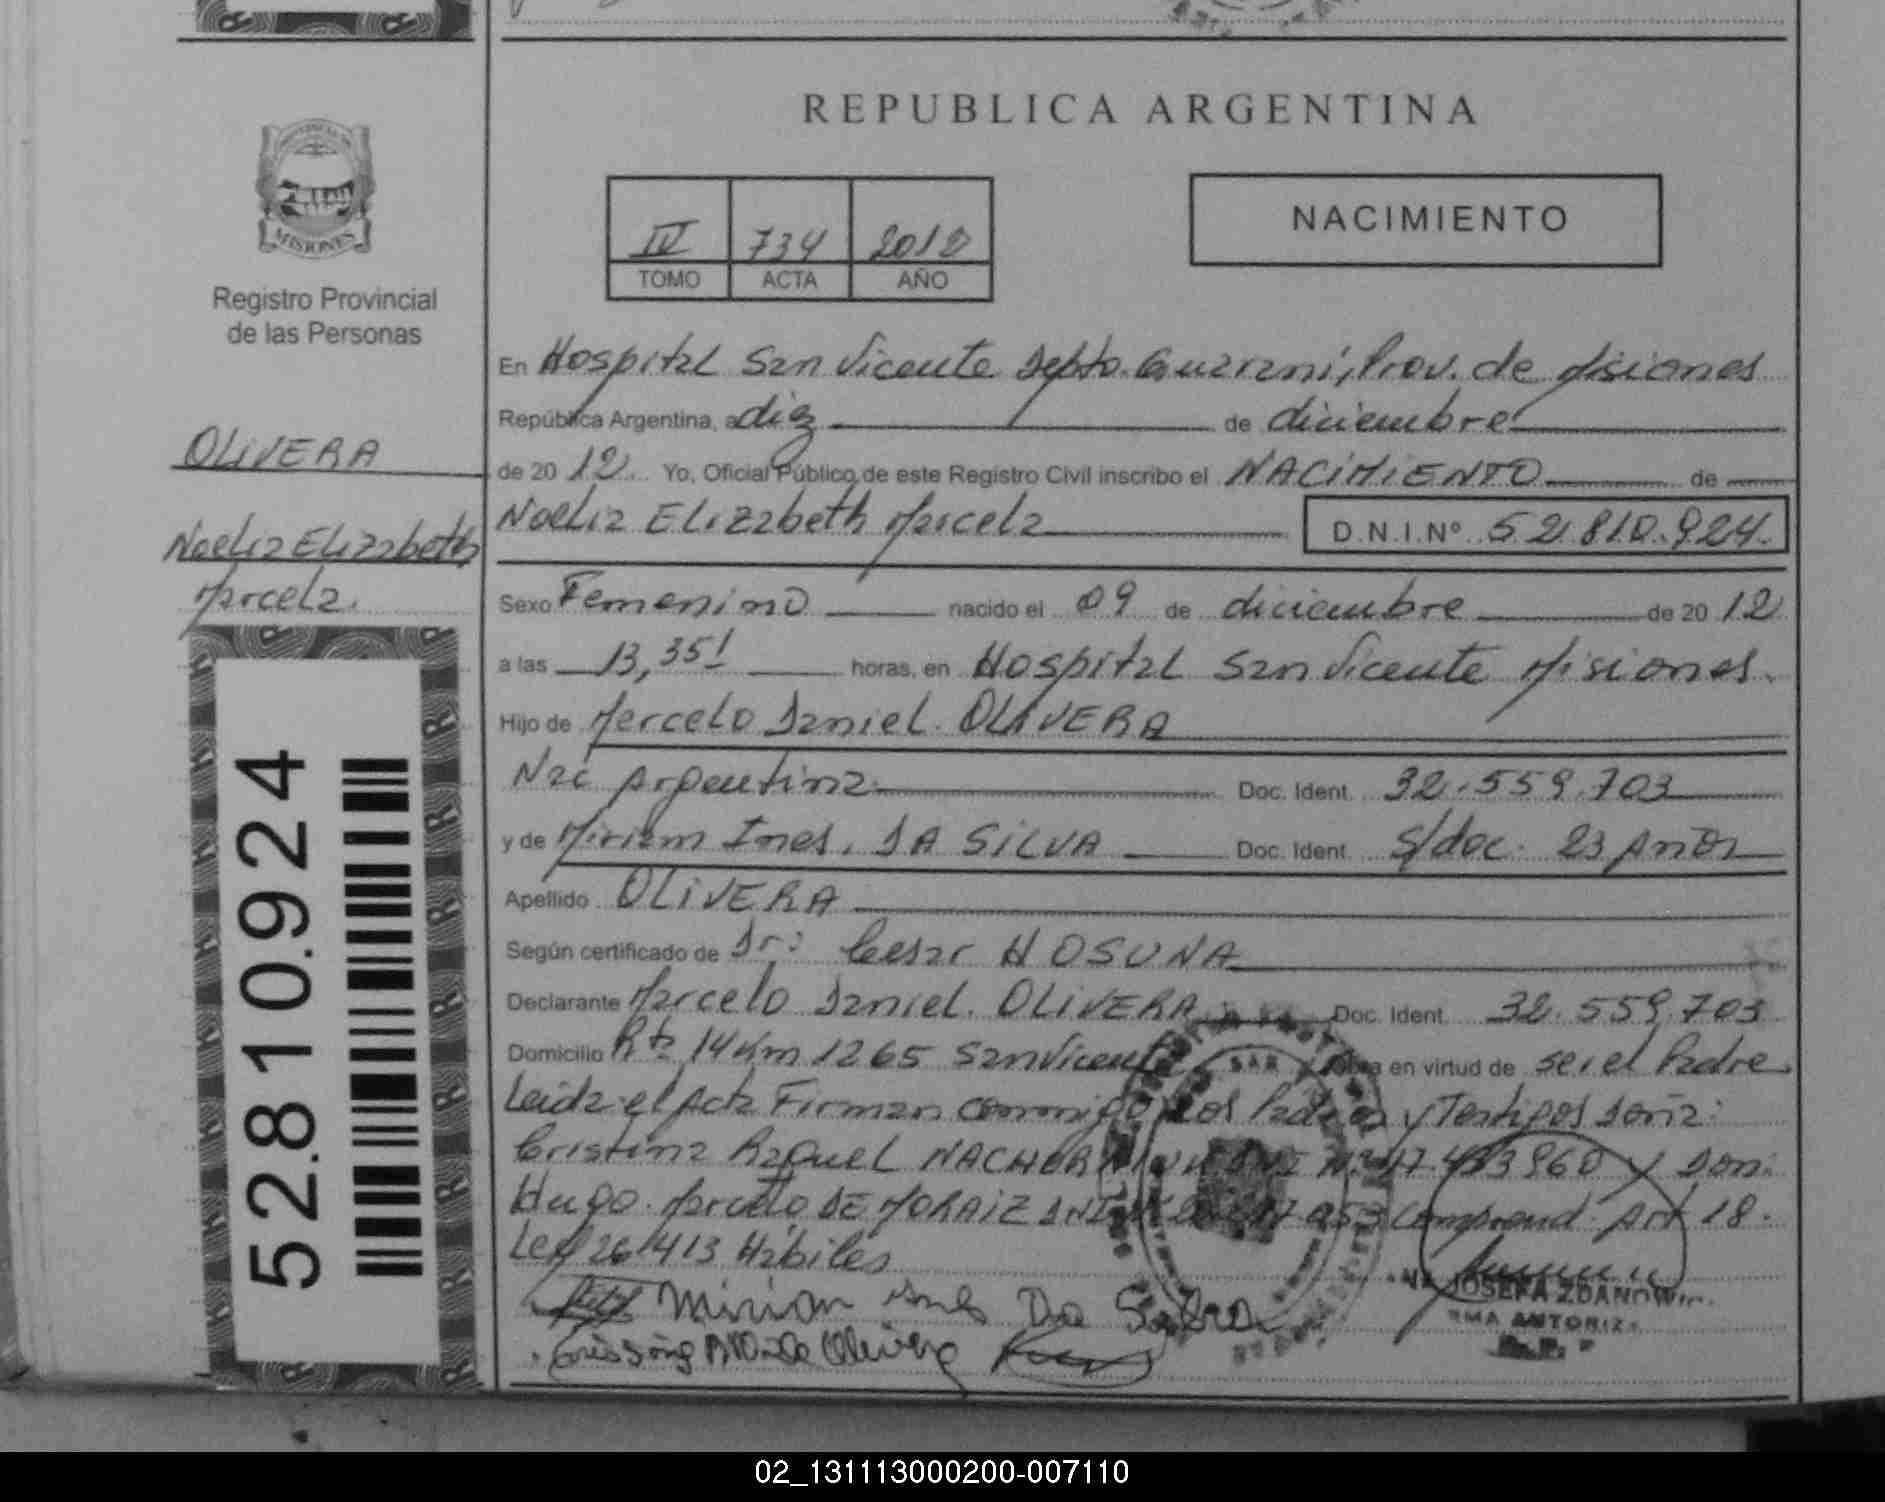 REPUBLICA ARGENTINA
IV 734 2012
TOMO ACTA AÑO
NACIMIENTO
MISIONES
Registro Provincial
de las Personas
OLIVERA
Noelia Elizabeth
Marcela.
52.810.924
En Hospital San Vicente Depto. Guarani, Prov. de Misiones
República Argentina, a diez de diciembre
de 20 12 Yo, Oficial Público de este Registro Civil inscribo el NACIMIENTO de
Noelia Elizabeth Marcela D.N.I.Nº 52.810.924.
Sexo Femenino nacido el 09 de diciembre de 20 12
a las 13,35' horas, en Hospital San Vicente Misiones.
Hijo de Marcelo Daniel. OLIVERA
Nac Argentina Doc. Ident. 32.559.703
y de Miriam Ines. DA SILVA Doc. Ident. S/doc. 23 Años
Apellido OLIVERA
Según certificado de Dr: Cesar HOSUNA
Declarante Marcelo Daniel. OLIVERA Doc. Ident. 32.559.703
Domicilio Rta 14 Km 1265 San Vicente Obra en virtud de ser el Padre.
Leida el Acta Firman conmigo los Padres y Testigos Doña:
Cristina Raquel DNI Nº y Don:
Hugo Marcelo DE MORAIZ DNI Comprend. Art 18.
Ley 26413 Habiles
Mirian ines Da Silva
JOSEFA ZDANOWI
02_131113000200-007110